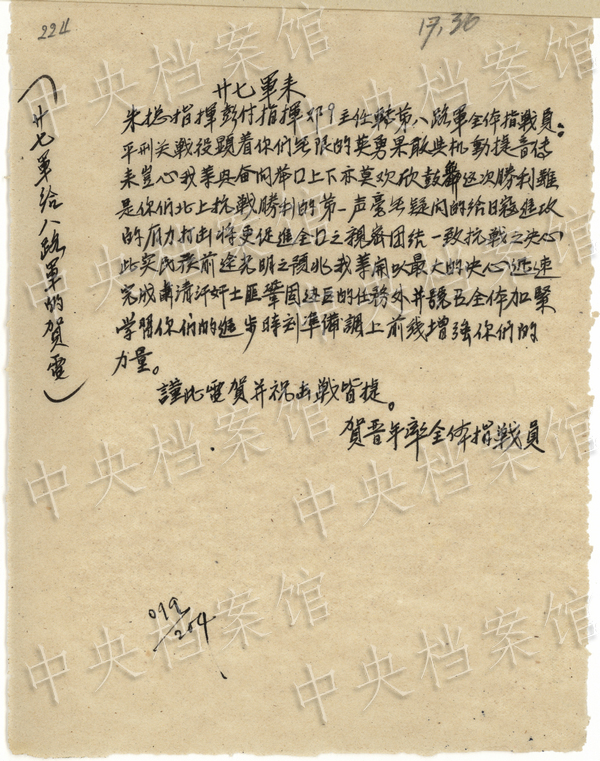 224
17.36
廿七軍来
朱总指揮彭付指揮邓主任轉第八路軍全体指戰員：
平刑关戰役顕着你们無限的英勇果敢与机動捷音傳
来豈心我等与甸口上下亦莫欢欣鼓舞这次勝利雖
是你们北上抗戰勝利的第一声毫无疑问的给日寇進攻
的打击将更促進全口之親密团结一致抗戰之决心
此实民族前途光明之預兆我等愿以最大的决心迅速
完成肅清汗奸土匪鞏固边区的任務外并號召全体加緊
学習你们的進步時刻準備調上前线增強你们的
力量。
謹此電賀并祝出戰皆捷。
賀晋年率全体指戰員
（廿七軍给八路軍的賀電）
019/204
中央档案馆